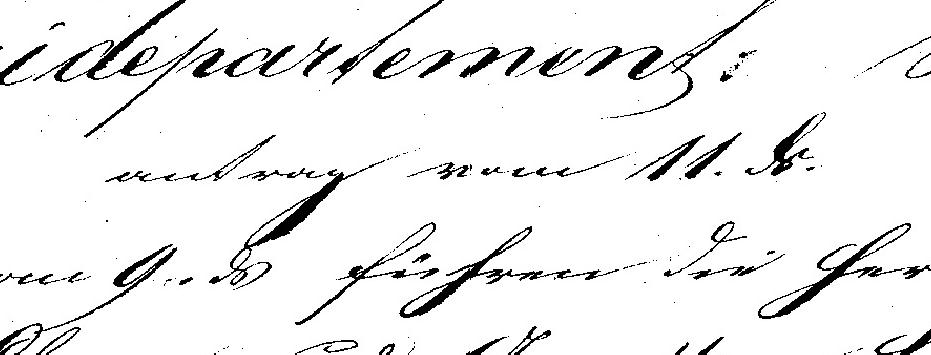 idepartement:
antrag vom 11. ds.
om 9. ds führen die Her